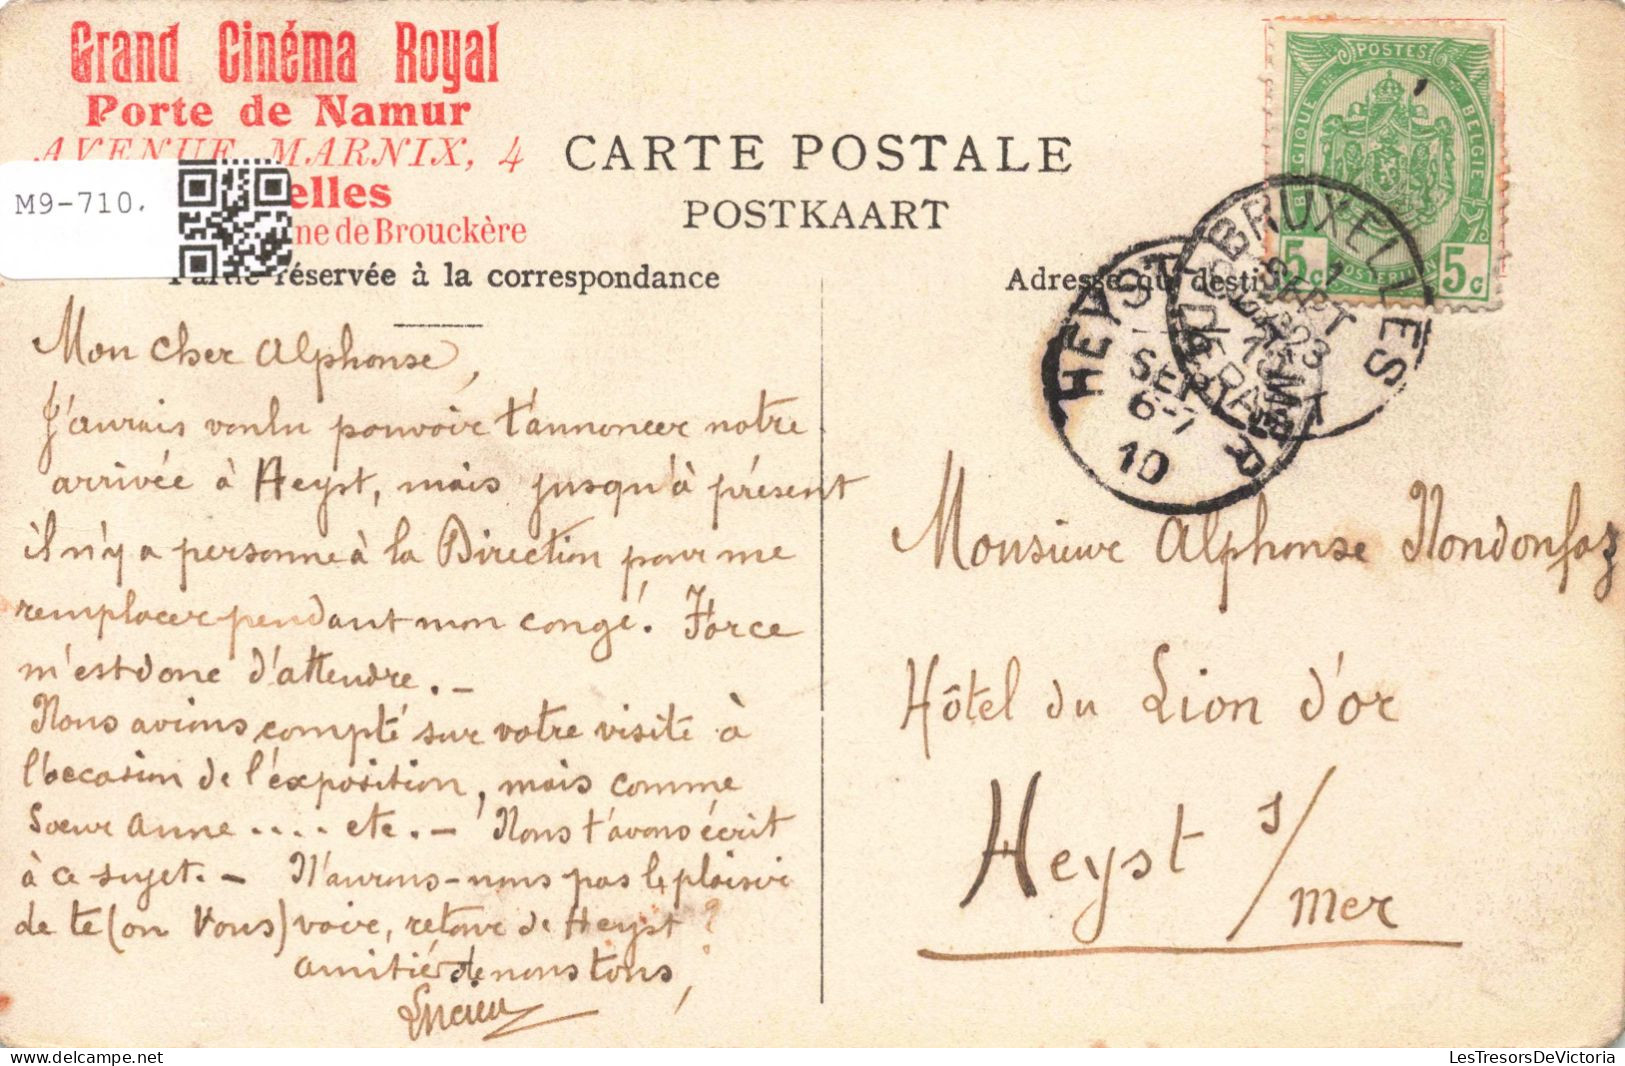 Grand Cinéma Royal
Porte de Namur
AVENUE MARNIX, 4
elles
ne de Brouckère
M9-710.
CARTE POSTALE
POSTKAART
Partie réservée à la correspondance
Adresse du desti
POSTES
BELGIQUE
BELGIË
POSTERIJEN
5c
5c
BRUXELLES
SEPT
HEYST
SEPT
6-7
10
Mon cher Alphonse,
J'aurais voulu pouvoir t'annoncer notre
arrivée à Heyst, mais jusqu'à présent
il n'y a personne à la Direction pour me
remplacer pendant mon congé. Force
m'est donc d'attendre. -
Nous avions compté sur votre visite à
l'occasion de l'exposition, mais comme
Soeur Anne .... etc. - Nous t'avons écrit
à ce sujet. - N'aurons-nous pas le plaisir
de te (ou vous) voir, retour de Heyst?
amitiés de nous tous,
Monsieur Alphonse Nondonfaz
Hôtel du Lion d'or
Heyst s/
mer
LesTresorsDeVictoria
delcampe.net